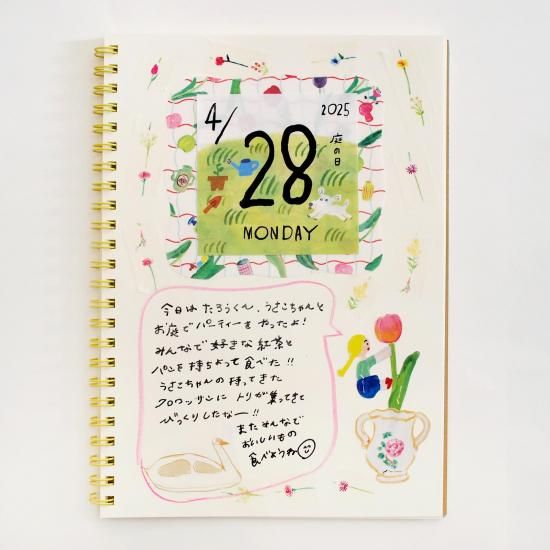 4/
2025
28
庭の日
MONDAY
今日は たろうくん、うさこちゃんと
お庭でパーティーをやったよ!
みんなで好きな紅茶と
パンを持ちよって食べた!!
うさこちゃんの持ってきた
クロワッサンに トリが 集ってきて
びっくりしたなー!!
またみんなで
おいしいもの
食べようね